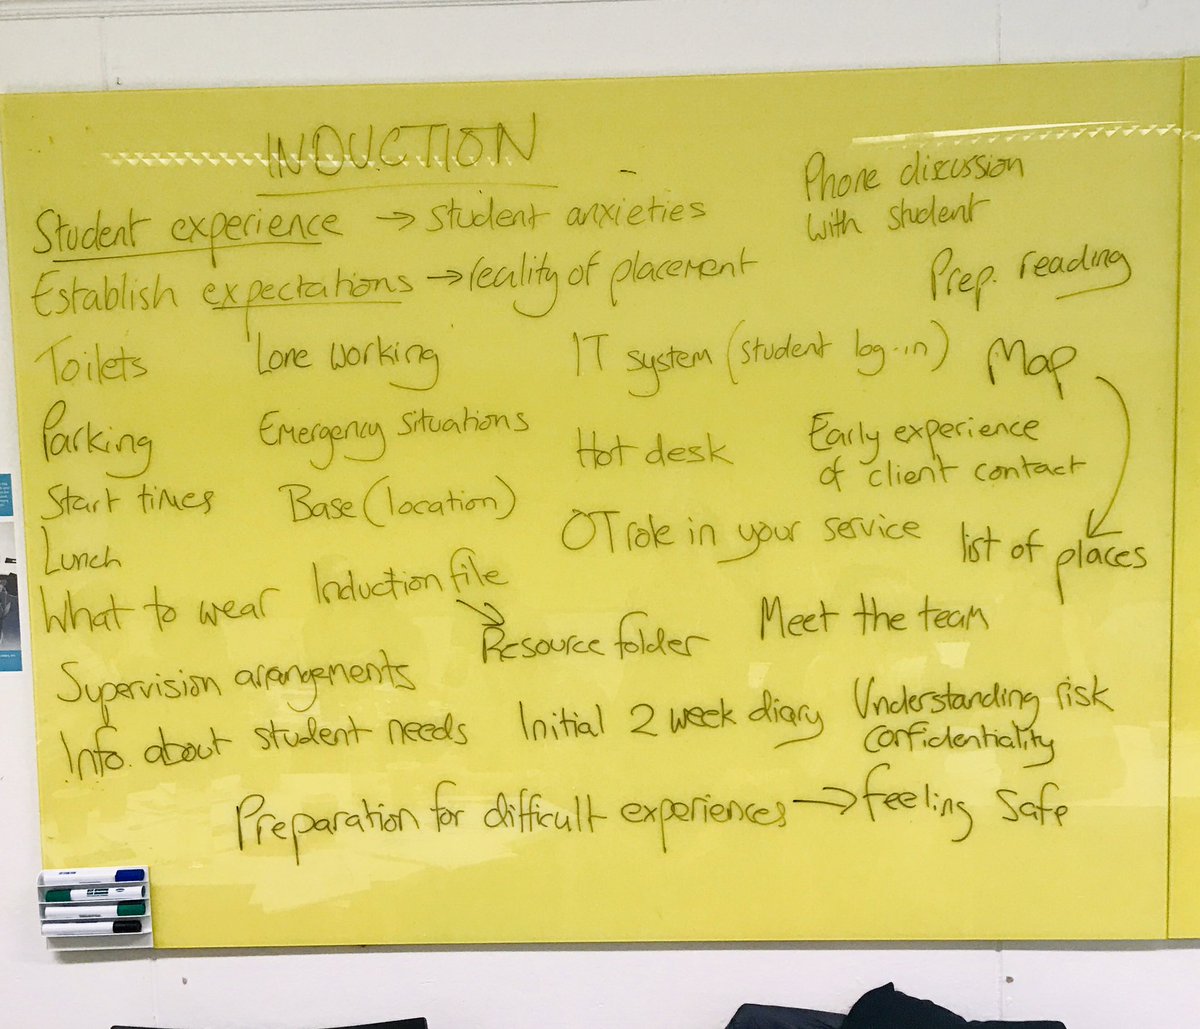 INDUCTION
Student experience → student anxieties
Phone discussion
with student
Establish expectations → reality of placement
Prep. reading
Toilets
Lone working
IT system (student log-in)
Map
Parking
Emergency situations
Hot desk
Early experience
of client contact
Start times
Base (location)
OT role in your service
list of places
Lunch
Induction file
What to wear
Resource folder
Meet the team
Supervision arrangements
Info. about student needs
Initial 2 week diary
Understanding risk
confidentiality
Preparation for difficult experiences → feeling safe